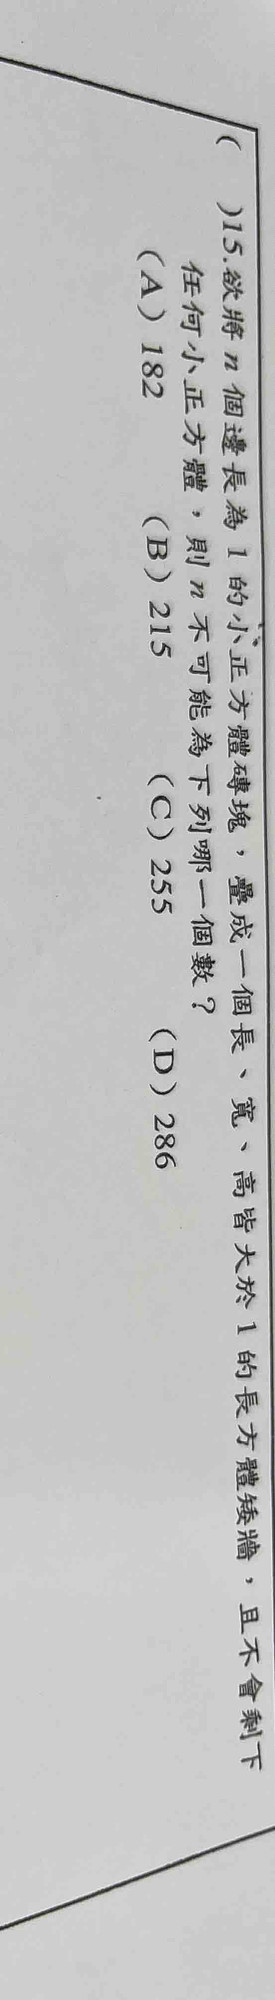 (　)15.欲將 n 個邊長為 1 的小正方體磚塊，疊成一個長、寬、高皆大於 1 的長方體矮牆，且不會剩下
任何小正方體，則 n 不可能為下列哪一個數？
(A) 182　(B) 215　(C) 255　(D) 286